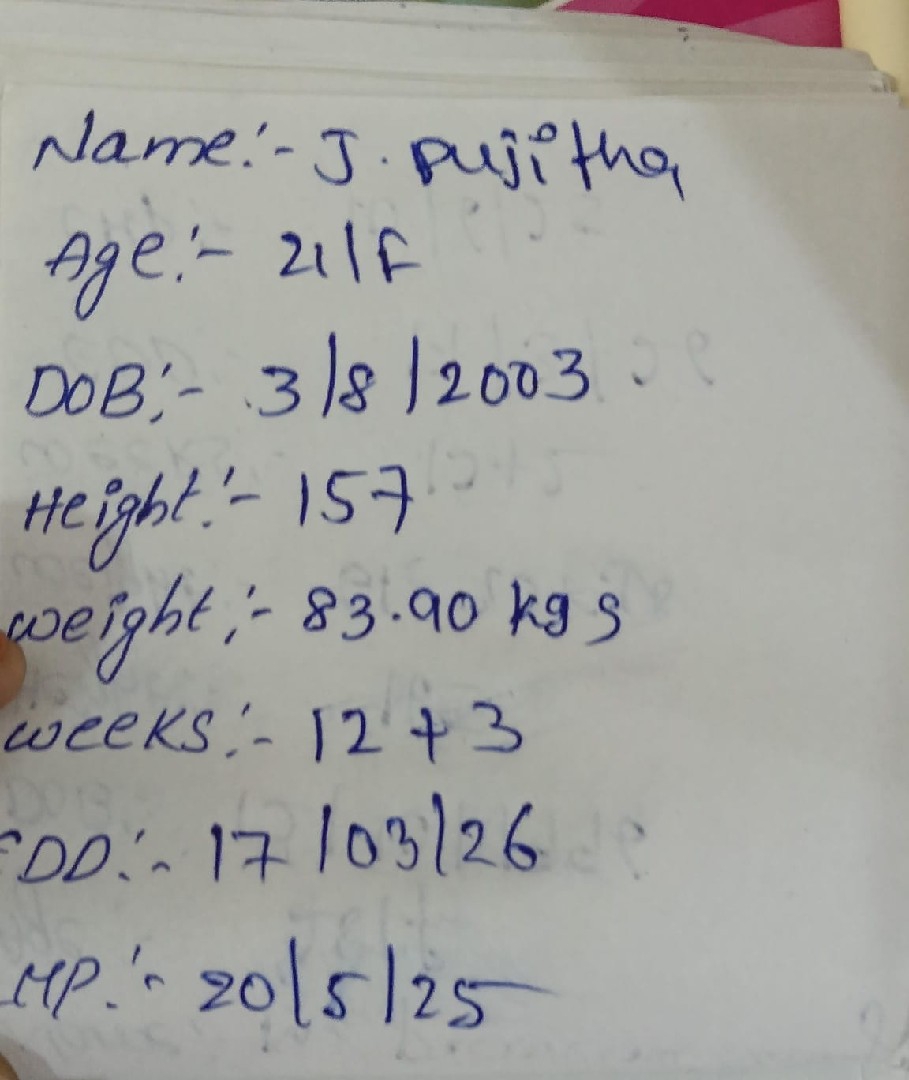 Name:- J. pujitha
Age:- 21/F
DOB:- 3/8/2003
Height:- 157
weight:- 83.90 kgs
weeks:- 12+3
EDD:- 17/03/26
LMP:- 20/5/25